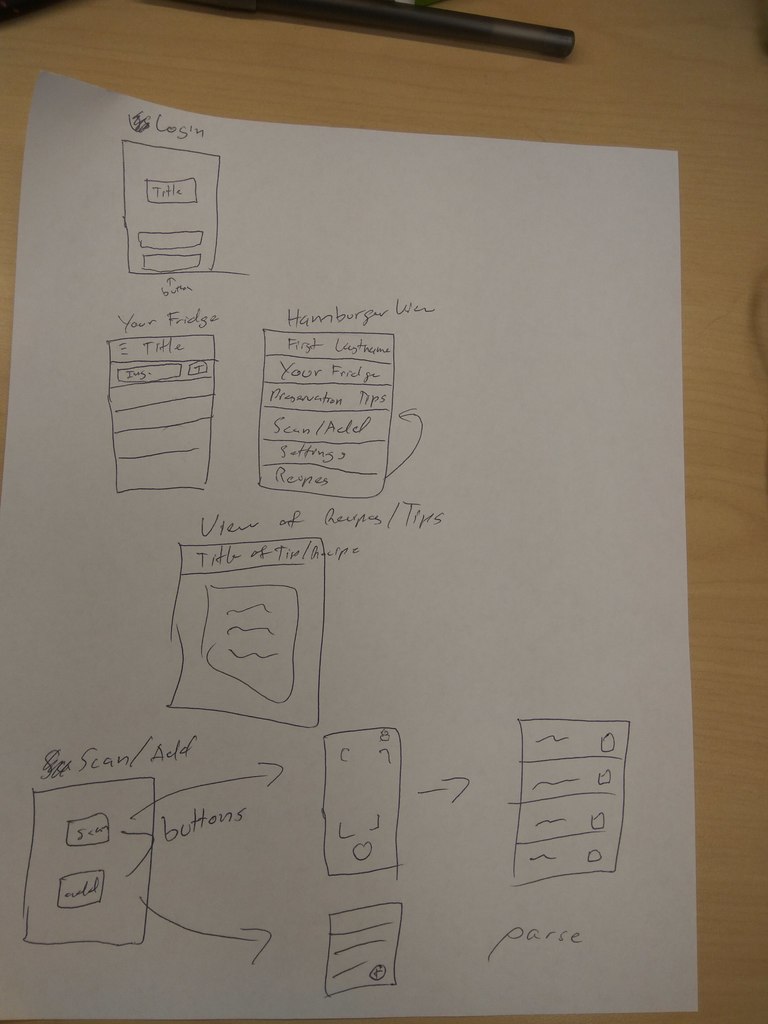 Login
Title
button
Your Fridge
Title
Ing.
T
Hamburger View
First Lastname
Your Fridge
Preservation Tips
Scan/Add
Settings
Recipes
View of Recipes/Tips
Title of Tip/Recipe
Scan/Add
scan
buttons
add
parse